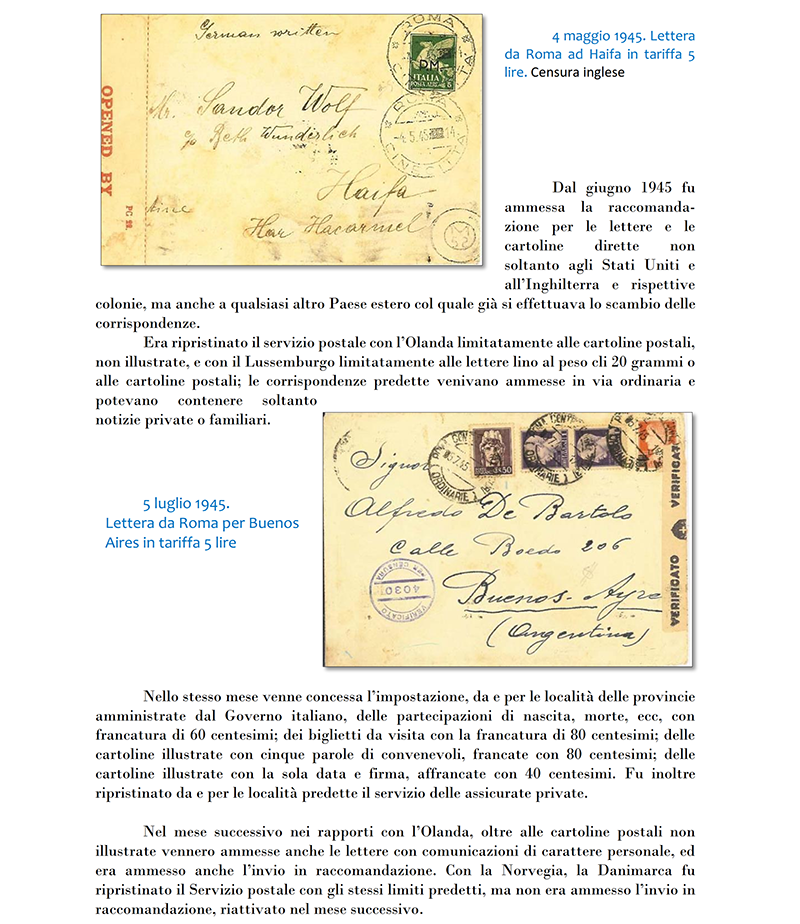 German written
ROMA
PM
ITALIA
POSTA AEREA
ROMA
4.5.45
CINECITTA
OPENED BY
PC 22.
Mr. Sandor Wolf
c/o Beth Wunderlich
Haifa
Har Hacarmel
4 maggio 1945. Lettera
da Roma ad Haifa in tariffa 5
lire. Censura inglese
Dal giugno 1945 fu
ammessa la raccomanda-
zione per le lettere e le
cartoline dirette non
soltanto agli Stati Uniti e
all’Inghilterra e rispettive
colonie, ma anche a qualsiasi altro Paese estero col quale già si effettuava lo scambio delle
corrispondenze.
Era ripristinato il servizio postale con l’Olanda limitatamente alle cartoline postali,
non illustrate, e con il Lussemburgo limitatamente alle lettere lino al peso cli 20 grammi o
alle cartoline postali; le corrispondenze predette venivano ammesse in via ordinaria e
potevano contenere soltanto
notizie private o familiari.
5 luglio 1945.
Lettera da Roma per Buenos
Aires in tariffa 5 lire
ORDINARIE
50
ORDINARIE
Signor
Alfredo De Bartolo
Calle Boedo 206
Buenos-Ayre
(Argentina)
VERIFICATO
VERIFICATO
PER CENSURA
4030
VERIFICATO
Nello stesso mese venne concessa l’impostazione, da e per le località delle provincie
amministrate dal Governo italiano, delle partecipazioni di nascita, morte, ecc, con
francatura di 60 centesimi; dei biglietti da visita con la francatura di 80 centesimi; delle
cartoline illustrate con cinque parole di convenevoli, francate con 80 centesimi; delle
cartoline illustrate con la sola data e firma, affrancate con 40 centesimi. Fu inoltre
ripristinato da e per le località predette il servizio delle assicurate private.
Nel mese successivo nei rapporti con l’Olanda, oltre alle cartoline postali non
illustrate vennero ammesse anche le lettere con comunicazioni di carattere personale, ed
era ammesso anche l’invio in raccomandazione. Con la Norvegia, la Danimarca fu
ripristinato il Servizio postale con gli stessi limiti predetti, ma non era ammesso l’invio in
raccomandazione, riattivato nel mese successivo.